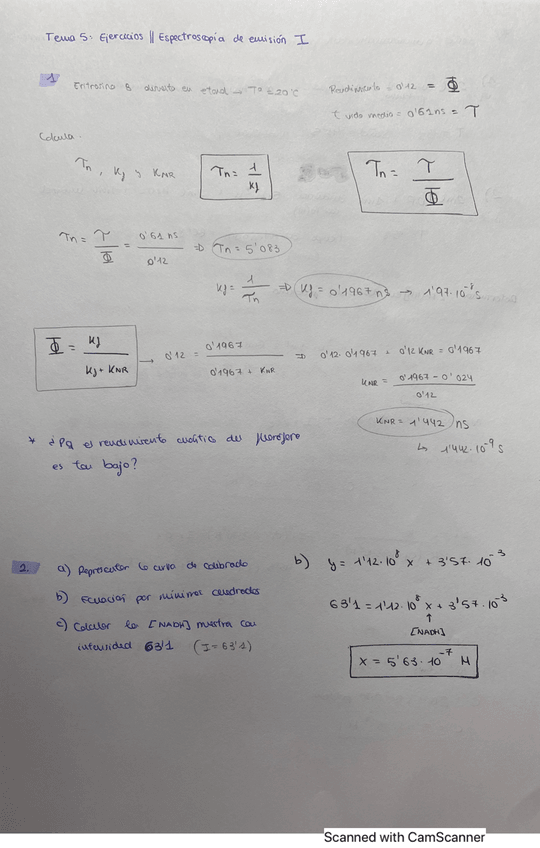 Tema 5: Ejercicios || Espectroscopía de emisión I
1 Eritrosina B disuelta en etanol → Tª = 20°C
Rendimiento = 0'12 = Φ
t vida medio = 0'61 ns = τ
Calcula.
τn, Kf y KNR
τn = 1/Kf
τn = τ/Φ
τn = τ/Φ = 0'61 ns/0'12 ⇒ τn = 5'083
Kf = 1/τn ⇒ Kf = 0'1967 ns → 1'97·10⁻⁸ s
Φ = Kf/(Kf + KNR) → 0'12 = 0'1967/(0'1967 + KNR) ⇒ 0'12 · 0'1967 + 0'12 KNR = 0'1967
KNR = (0'1967 - 0'024)/0'12
KNR = 1'442 ns
↳ 1'442·10⁻⁹ s
* ¿Pq el rendimiento cuántico del fluoróforo
es tan bajo?
2. a) Representar la curva de calibrado
b) Ecuación por mínimos cuadrados
c) Calcular la [NADH] muestra con
intensidad 63'1 (I = 63'1)
b) y = 1'12·10⁸ x + 3'57·10⁻³
63'1 = 1'12·10⁸ x + 3'57·10⁻³
↑
[NADH]
x = 5'63·10⁻⁷ M
Scanned with CamScanner